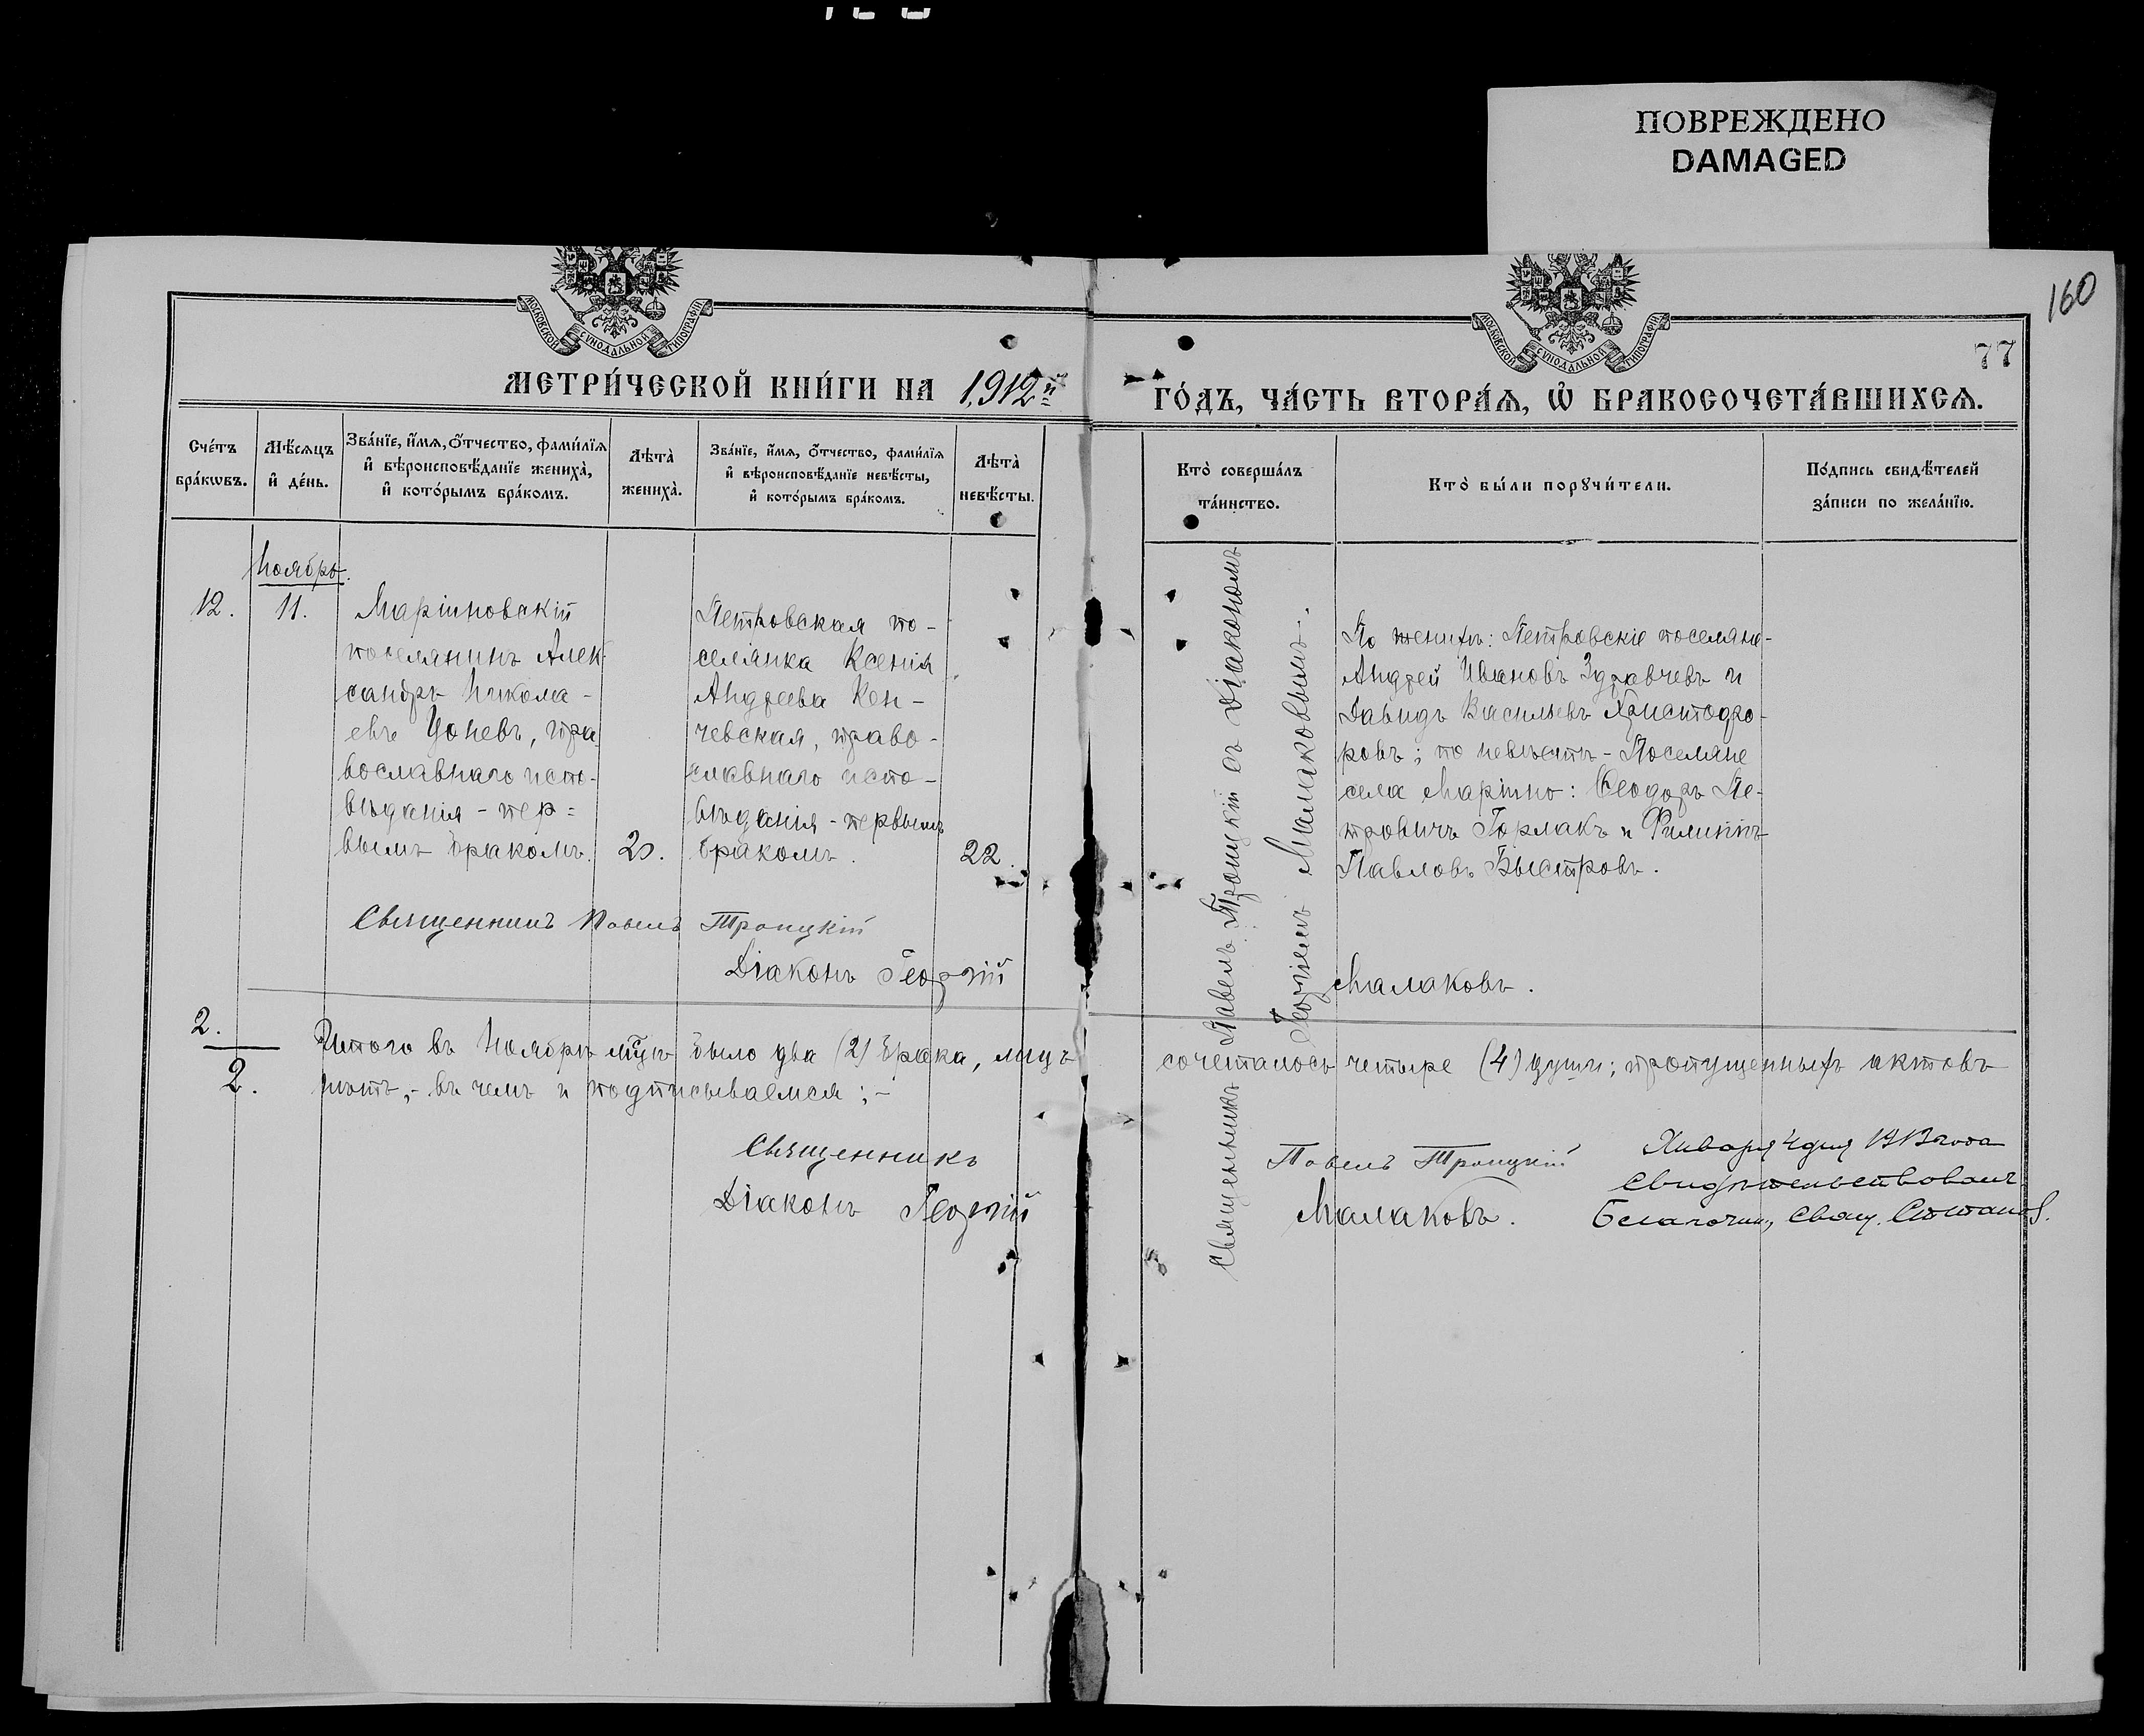 ПОВРЕЖДЕНО
DAMAGED
160
77
МОСКОВСКОЙ СѴНОДАЛЬНОЙ ТИПОГРАФІИ
МОСКОВСКОЙ СѴНОДАЛЬНОЙ ТИПОГРАФІИ
МЕТРИ́ЧЕСКОЙ КНИ́ГИ НА 1912й
ГО́ДЪ, ЧА́СТЬ ВТОРА́Ѧ, Ѡ҆ БРАКОСОЧЕТА́ВШИХСѦ.
Сче́тъ
бра́кѡвъ.
Мѣ́сѧцъ
и҆ де́нь.
Зва́нїе, и҆́мѧ, ѻ҆́тчество, фами́лїѧ
и҆ вѣроисповѣ́данїе жениха̀,
и҆ кото́рымъ бра́комъ.
Лѣта̀
жениха̀.
Зва́нїе, и҆́мѧ, ѻ҆́тчество, фами́лїѧ
и҆ вѣроисповѣ́данїе невѣ́сты,
и҆ кото́рымъ бра́комъ.
Лѣта̀
невѣ́сты.
Кто̀ соверша́лъ
та́инство.
Кто̀ бы́ли порꙋчи́тели.
По́дпись свидѣ́телей
за́писи по жела́нїю.
Ноябрь.
12.
11.
Маріиновскій
поселянинъ Алек-
сандръ Никола-
евъ Цоневъ, пра
вославнаго испо-
вѣданія - пер=
вымъ бракомъ.
20.
Петровская по-
селянка Ксенія
Андреева Кен-
чевская, право-
славнаго испо-
вѣданія - первымъ
бракомъ.
22.
Священникъ Павелъ Троицкій съ Діакономъ
Георгіемъ Малаковымъ.
По женихѣ: Петровскіе поселяне-
Андрей Ивановъ Здравчевъ и
Давидъ Васильевъ Христодо-
ровъ; по невѣстѣ - Поселяне
села Маріино: Ѳеодоръ Пе-
тровичъ Горлакъ и Филиппъ
Павловъ Быстровъ.
Священникъ Павелъ Троицкій
Діаконъ Георгій Малаковъ.
2.
2.
Итого въ Ноябрѣ мцѣ было два (2) брака, лицъ сочеталось четыре (4) души; пропущенныхъ актовъ
нѣтъ,- въ чемъ и подписываемся;-
Священникъ Павелъ Троицкій
Діаконъ Георгій Малаковъ.
Января 4 дня 1913 года
свидѣтельствовалъ
Благочин, Свящ.